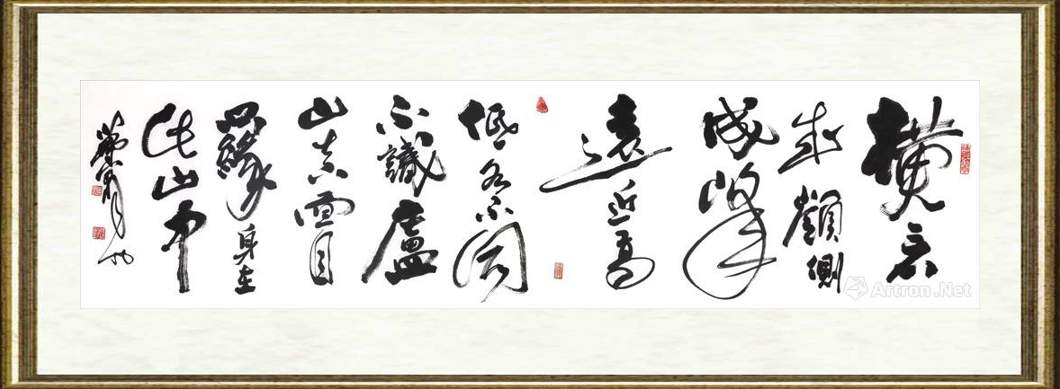 橫看
成嶺側
成峰
遠近高
低各不同
不識廬
山真面目
只緣身在
此山中
Artron.Net